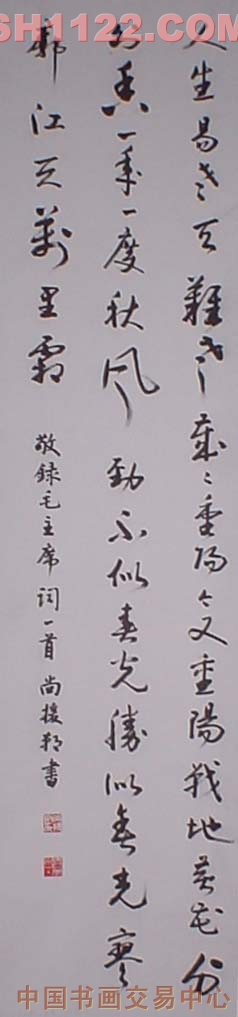 SH1122.COM
人生易老天難老歲々重陽今又重陽战地黄花分
外香一年一度秋風勁不似春光勝似春光寥
廓江天萬里霜
敬録毛主席詞一首 尚援朝書
中国书画交易中心